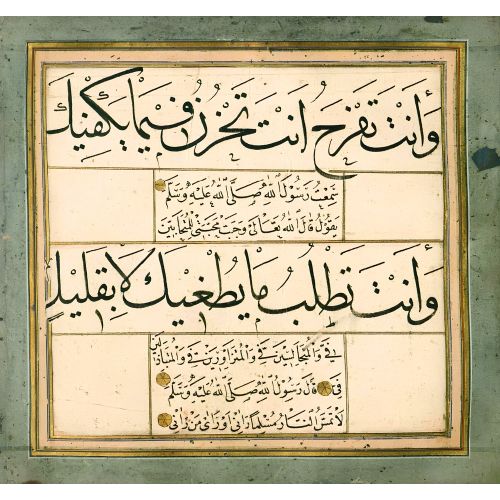 وأنت تفرح أنت تحزن وفيما يكفيك
سمعت رسول الله صلى الله عليه وسلم
يقول قال الله تعالى وجبت محبتي للمتحابين
وأنت تطلب ما يطغيك لا بقليل
في والمتجالسين في والمتزاورين في والمتباذلين
في قال رسول الله صلى الله عليه وسلم
لا تمس النار مسلما رآني أو رأى من رآني